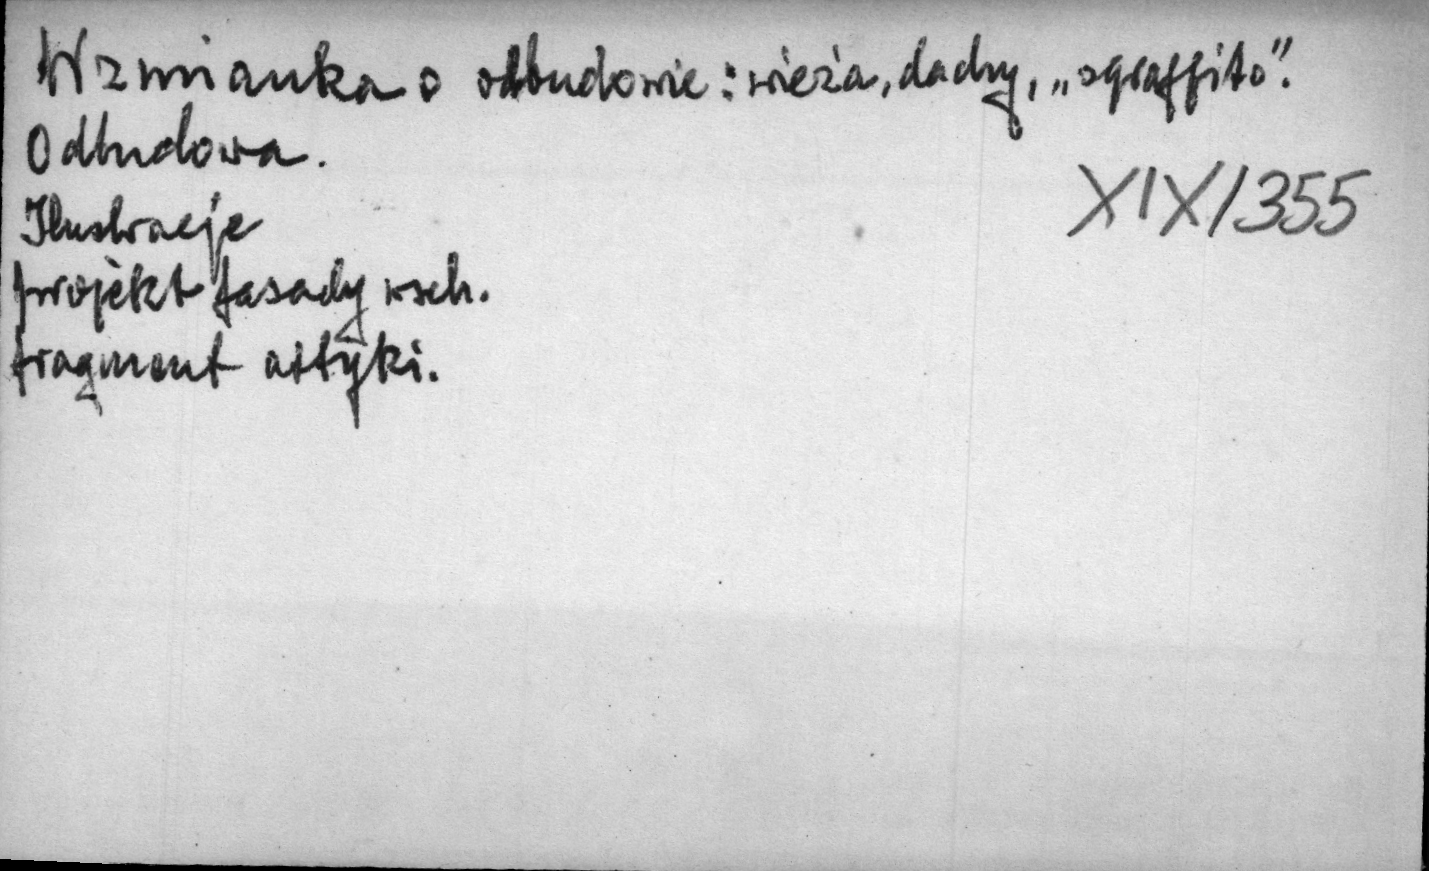 Wzmianka o odbudowie: wieża, dachy, „sgraffito".
Odbudowa.
XIX/355
Ilustracje
projekt fasady wsch.
fragment attyki.